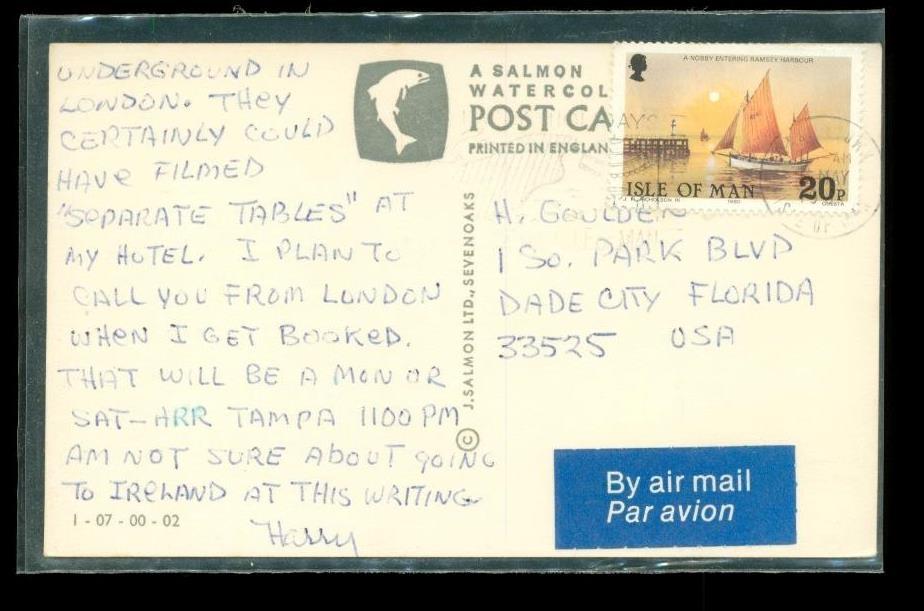 UNDERGROUND IN
LONDON. THEY
CERTAINLY COULD
HAVE FILMED
"SEPARATE TABLES" AT
MY HOTEL. I PLAN TO
CALL YOU FROM LONDON
WHEN I GET BOOKED.
THAT WILL BE A MON OR
SAT-ARR TAMPA 1100 PM
AM NOT SURE ABOUT GOING
TO IRELAND AT THIS WRITING
Harry
1-07-00-02
A SALMON
WATERCOL
POST CA
PRINTED IN ENGLAN
© J.SALMON LTD., SEVENOAKS
A NOBBY ENTERING RAMSEY HARBOUR
ISLE OF MAN 20p
J. H. NICHOLSON RI 1980 QUESTA
H. GOULDEN
1 SO. PARK BLVD
DADE CITY FLORIDA
33525 USA
By air mail
Par avion